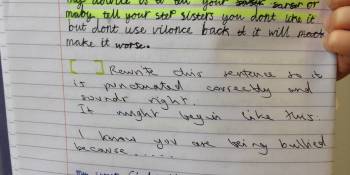 my advice is to tell your or
maby tell your step sisters you dont like it
but dont use vilonce back it will
make it worse.
[ ] Rewrite this sentence so it
is punctuated correctly and
sounds right.
It might begin like this:
I know you are being bullied
because ......